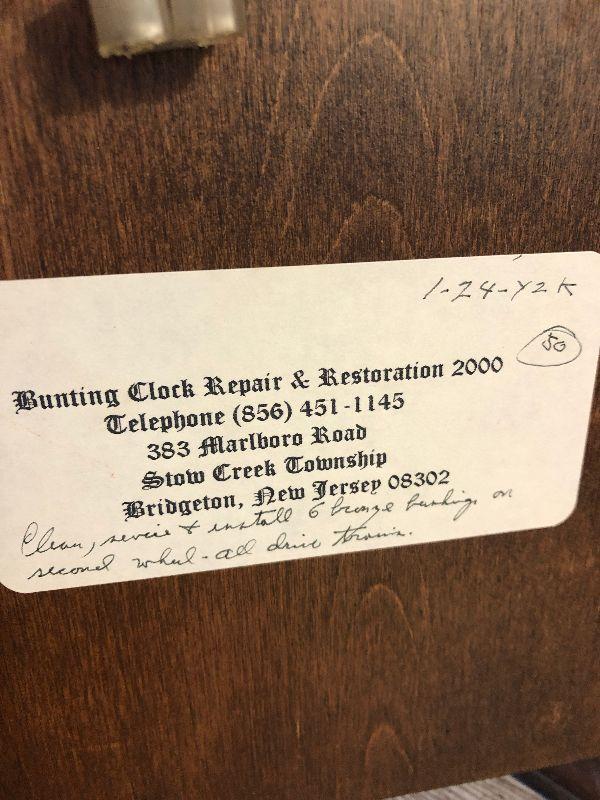 1-24-Y2K
50
Bunting Clock Repair & Restoration 2000
Telephone (856) 451-1145
383 Marlboro Road
Stow Creek Township
Bridgeton, New Jersey 08302
Clean, service + install 6 bronze bushings on
second wheel - all drive trains.